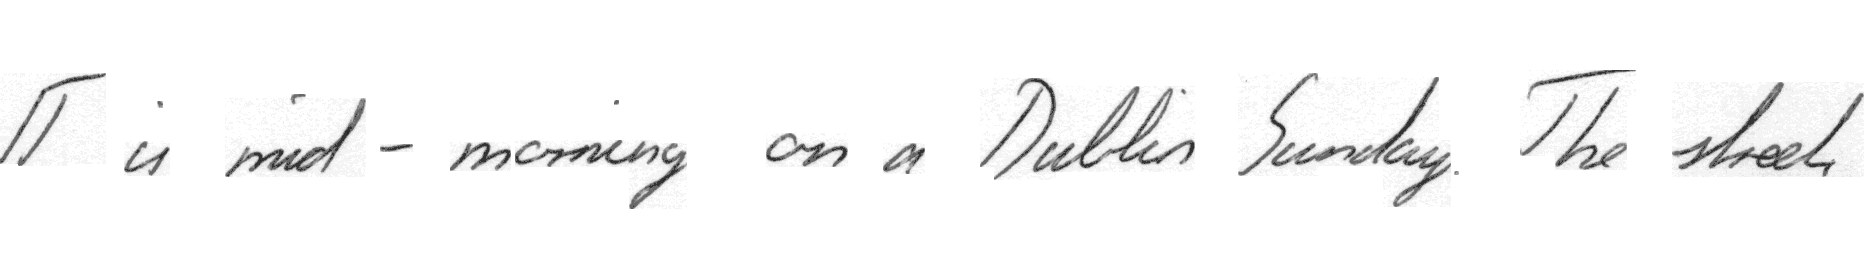 IT is mid - morning on a Dublin Sunday. The streets